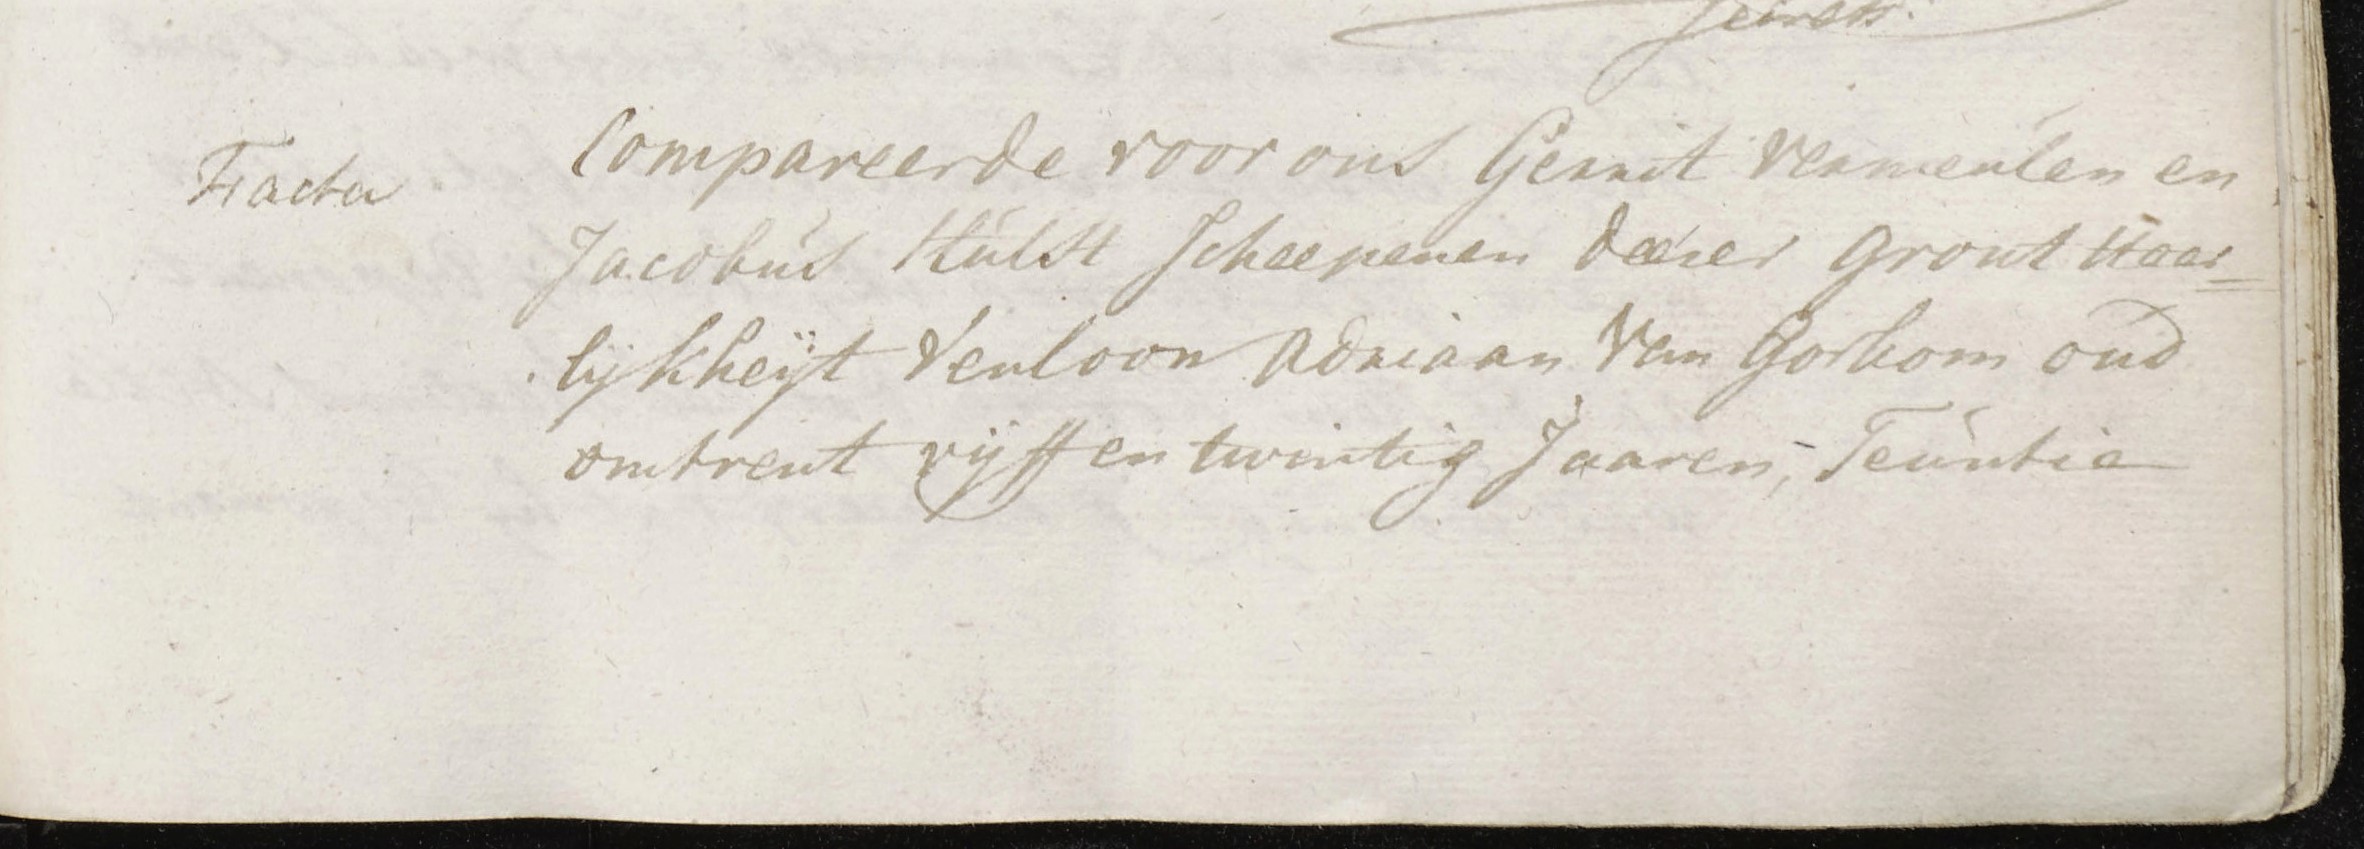 Secrets.
Facta
Compareerde voor ons Gerrit Vermeulen en
Jacobus Hulst Scheepenen deeser Gront Heer=
lijkheijt Venloon Adriaan Van Gorkom oud
ombrent vijff en twintig Jaaren, Teuntie